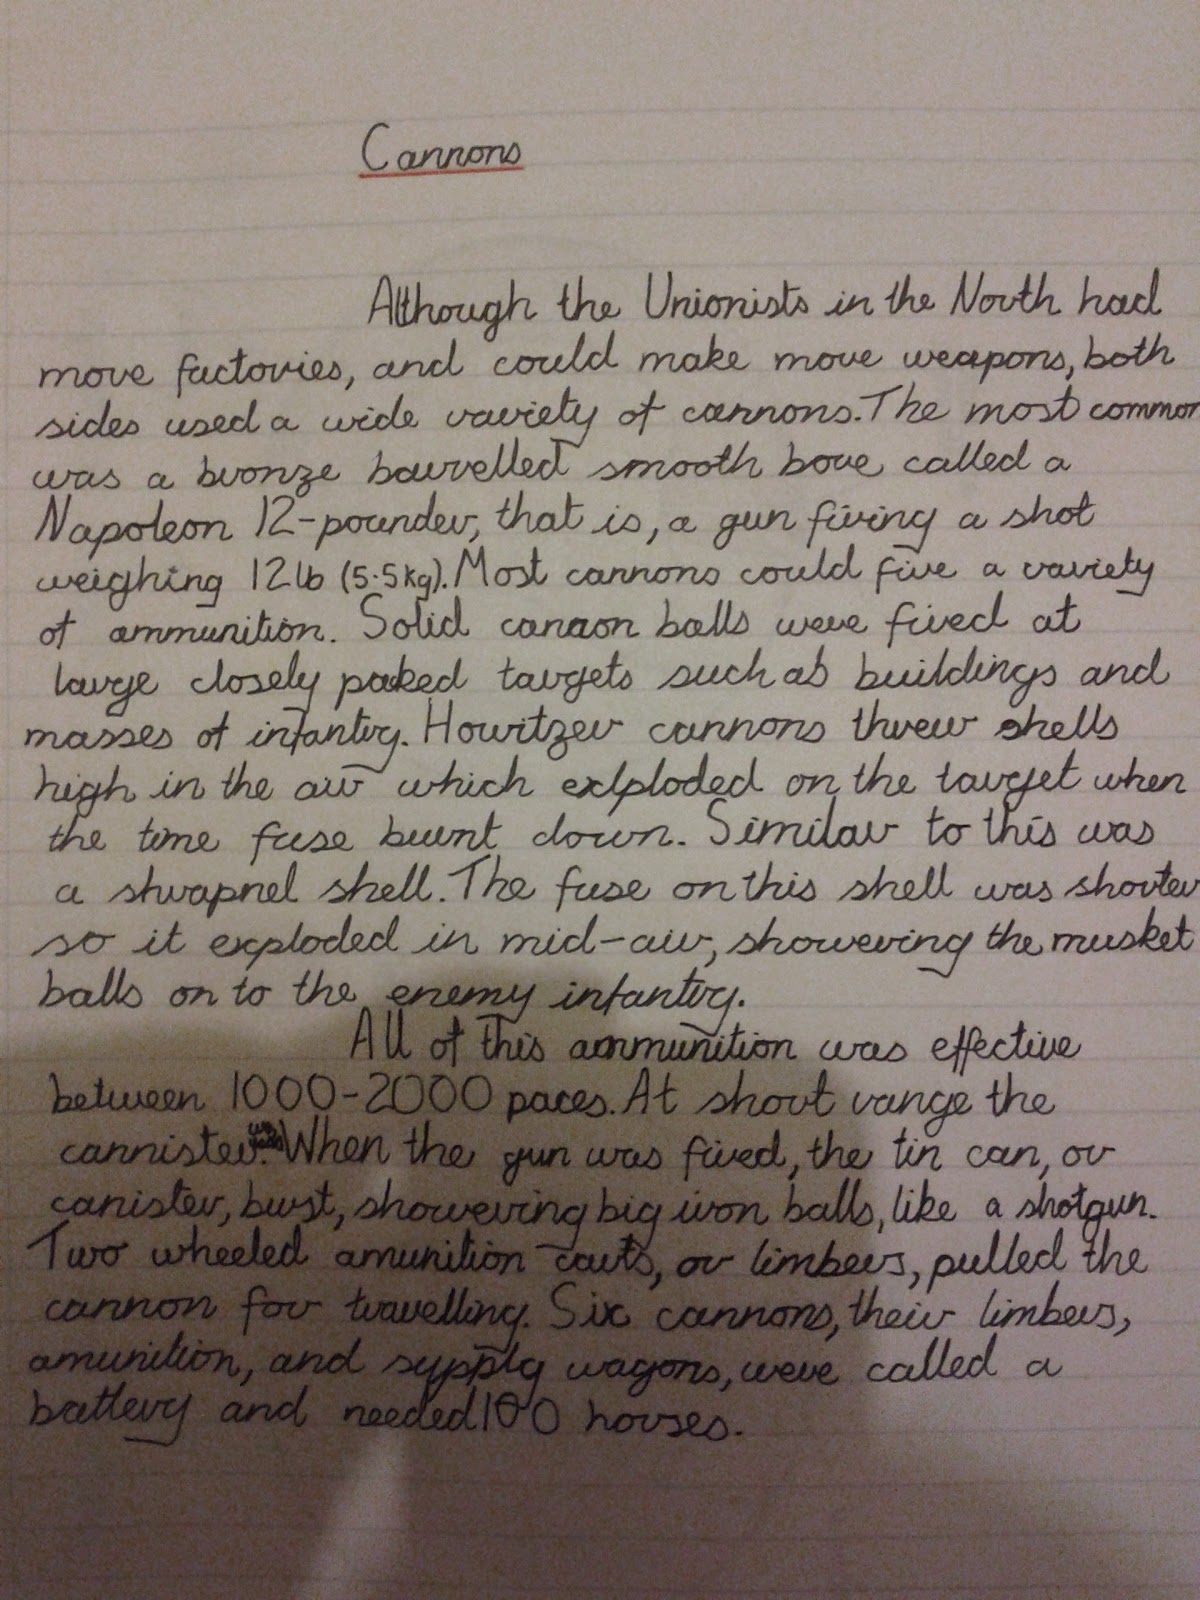 Cannons
Although the Unionists in the North had
more factories, and could make more weapons, both
sides used a wide variety of cannons. The most common
was a bronze barrelled smooth bore called a
Napoleon 12-pounder, that is, a gun firing a shot
weighing 12lb (5.5kg). Most cannons could fire a variety
of ammunition. Solid cannon balls were fired at
large closely packed targets such as buildings and
masses of infantry. Howitzer cannons threw shells
high in the air which exploded on the target when
the time fuse burnt down. Similar to this was
a shrapnel shell. The fuse on this shell was shorter
so it exploded in mid-air, showering the musket
balls on to the enemy infantry.
All of this ammunition was effective
between 1000-2000 paces. At short range the
cannister was used. When the gun was fired, the tin can, or
canister, burst, showering big iron balls, like a shotgun.
Two wheeled amunition carts, or limbers, pulled the
cannon for travelling. Six cannons, their limbers,
amunition, and supply wagons, were called a
battery and needed 100 horses.